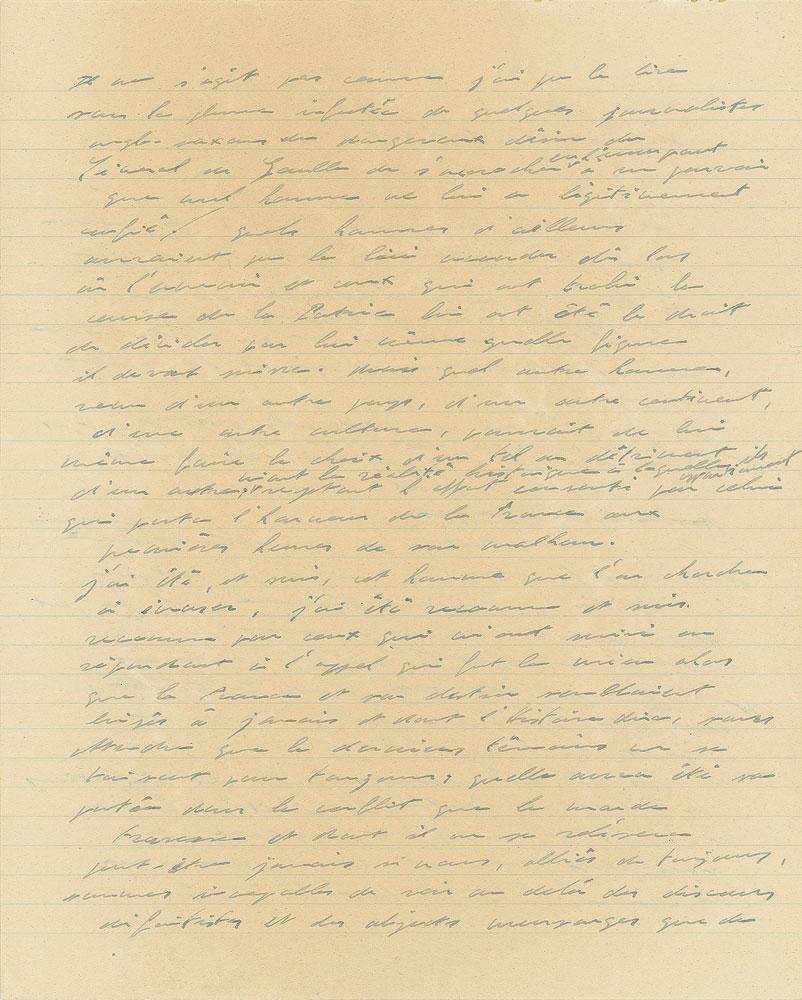 Il ne s'agit pas comme j'ai pu le lire
sous la plume infectée de quelques journalistes
anglo-saxons du dangereux désir du
Général de Gaulle de s'accrocher à un pouvoir
que nul homme ne lui a légitimement
confié! quels hommes d'ailleurs
auraient pu le lui accorder dès lors
où l'ennemi et ceux qui ont trahi la
cause de la Patrie lui ont ôté le droit
de décider par lui même quelle figure
il devrait suivre. Mais quel autre homme,
venu d'un autre pays, d'un autre continent,
d'une autre culture, pourrait de lui
même faire le choix d'un tel au détriment
niant la réalité historique à laquelle ils appartiennent
d'un autre, l'effort consenti par celui
qui porta l'honneur de la France aux
premières heures de son malheur.
j'ai été, et suis, cet homme que l'on cherche
à écraser, j'ai été reconnu et suis
reconnu par ceux qui m'ont suivi en
répondant à l'appel qui fut le mien alors
que la France et son destin semblaient
à jamais et dont l'Histoire dira, sans
attendre que les derniers témoins ne se
taisent pour toujours, quelle aura été sa
portée dans le conflit que le monde
traverse et dont il ne se relèvera
peut-être jamais si nous, alliés de toujours,
sommes incapables de voir au delà des discours
défaitistes et des abjects mensonges que de